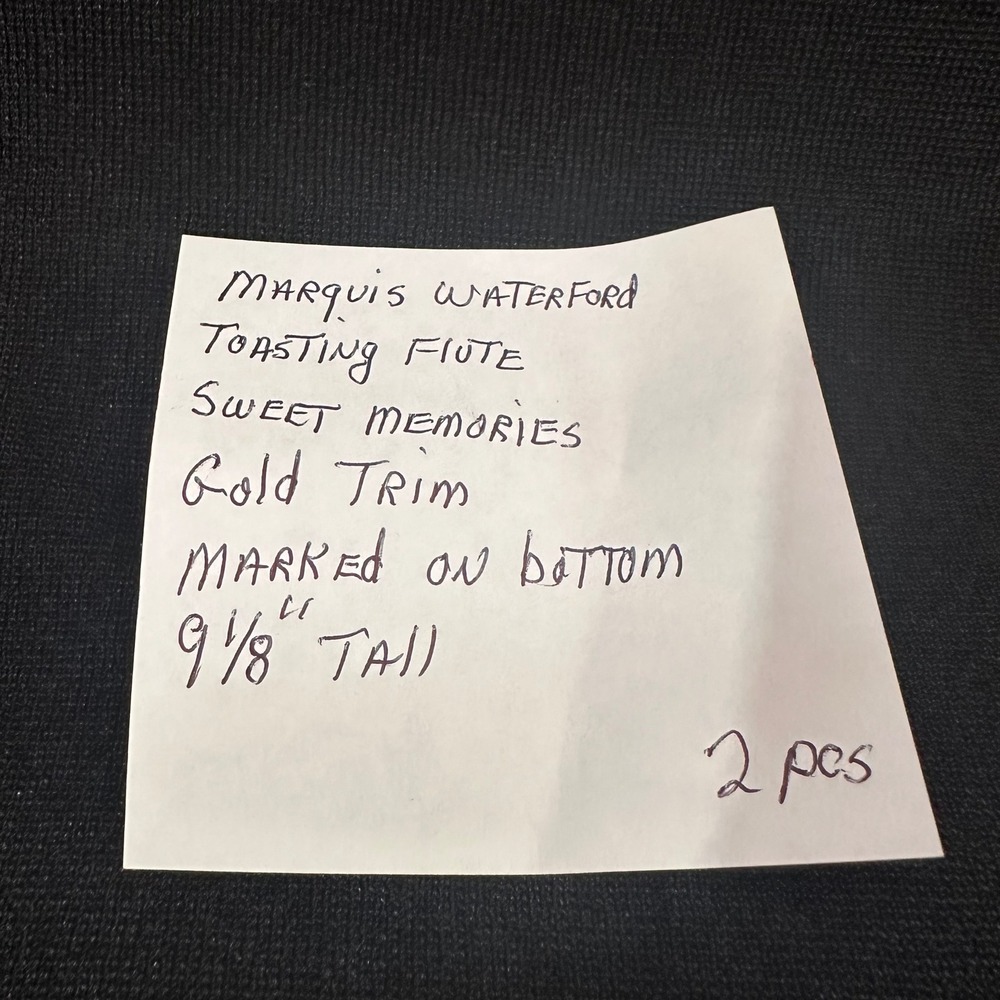 MARquis WATERFORd
TOASTiNg FlUTE
SWEET MEMORiES
Gold TRim
MARKEd ON bOTTOM
9 1/8" TAll
2 pcs